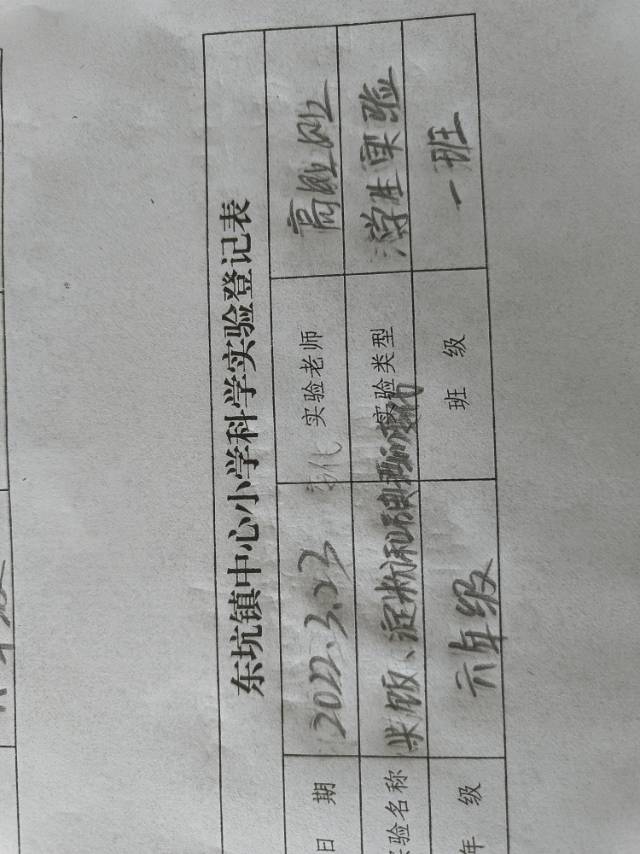 东坑镇中心小学科学实验登记表
日 期 2022.3.23 实验老师 高
验名称 米饭、淀粉和碘酒的 实验类型 学生实验
年 级 六年级 班 级 一班